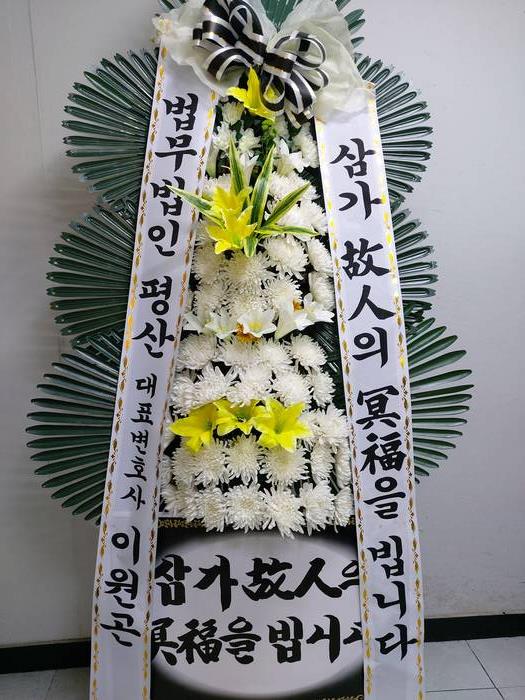 법무법인 평산 대표변호사 이원곤
삼가 故人의 冥福을 빕니다
삼가 故人의
冥福을 빕니다